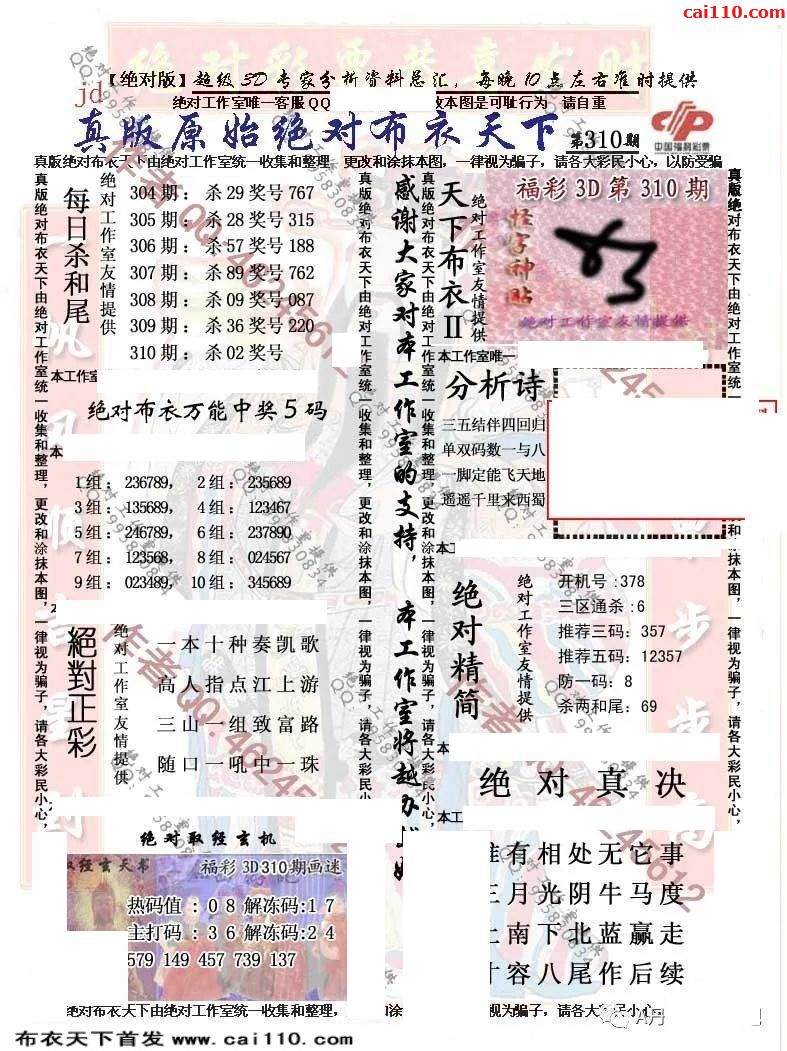 cai110.com
【绝对版】超级3D专家分析资料总汇，每晚10点左右准时提供
jd
绝对工作室唯一客服QQ
本图是可耻行为 请自重
真版原始绝对布衣天下
第310期
中国福利彩票
真版绝对布衣天下由绝对工作室统一收集和整理，更改和涂抹本图，一律视为骗子，请各大彩民小心，以防受骗
每日杀和尾
绝对工作室友情提供
304期：杀29奖号767
305期：杀28奖号315
306期：杀57奖号188
307期：杀89奖号762
308期：杀09奖号087
309期：杀36奖号220
310期：杀02奖号
本工作室
绝对布衣万能中奖5码
本
1组：236789，2组：235689
3组：135689，4组：123467
5组：246789，6组：237890
7组：123568，8组：024567
9组：023489，10组：345689
絕對正彩
绝对工作室友情提供
一本十种奏凯歌
高人指点江上游
三山一组致富路
随口一吼中一珠
绝对取经玄机
取经玄天书
福彩3D310期画迷
热码值：08解冻码:17
主打码：36解冻码:24
579 149 457 739 137
真版绝对布衣天下由绝对工作室统一收集和整理，更改和涂抹本图，一律视为骗子，请各大彩民小心，
感谢大家对本工作室的支持，本工作室将越办越好
真版绝对布衣天下由绝对工作室统一收集和整理，更改和涂抹本图，一律视为骗子，请各大彩民小心，
天下布衣II
绝对工作室友情提供
福彩3D第310期
怪字神贴
绝对工作室友情提供
本工作室唯一
分析诗
三五结伴四回归
单双码数一与八
一脚定能飞天地
遥遥千里来西蜀
绝对精简
绝对工作室友情提供
开机号:378
三区通杀:6
推荐三码：357
推荐五码：12357
防一码：8
杀两和尾：69
本
绝对真决
本工
有相处无它事
月光阴牛马度
南下北蓝赢走
容八尾作后续
绝对布衣天下由绝对工作室统一收集和整理，
和涂
视为骗子，请各大彩民小心
布衣天下首发 www.cai110.com